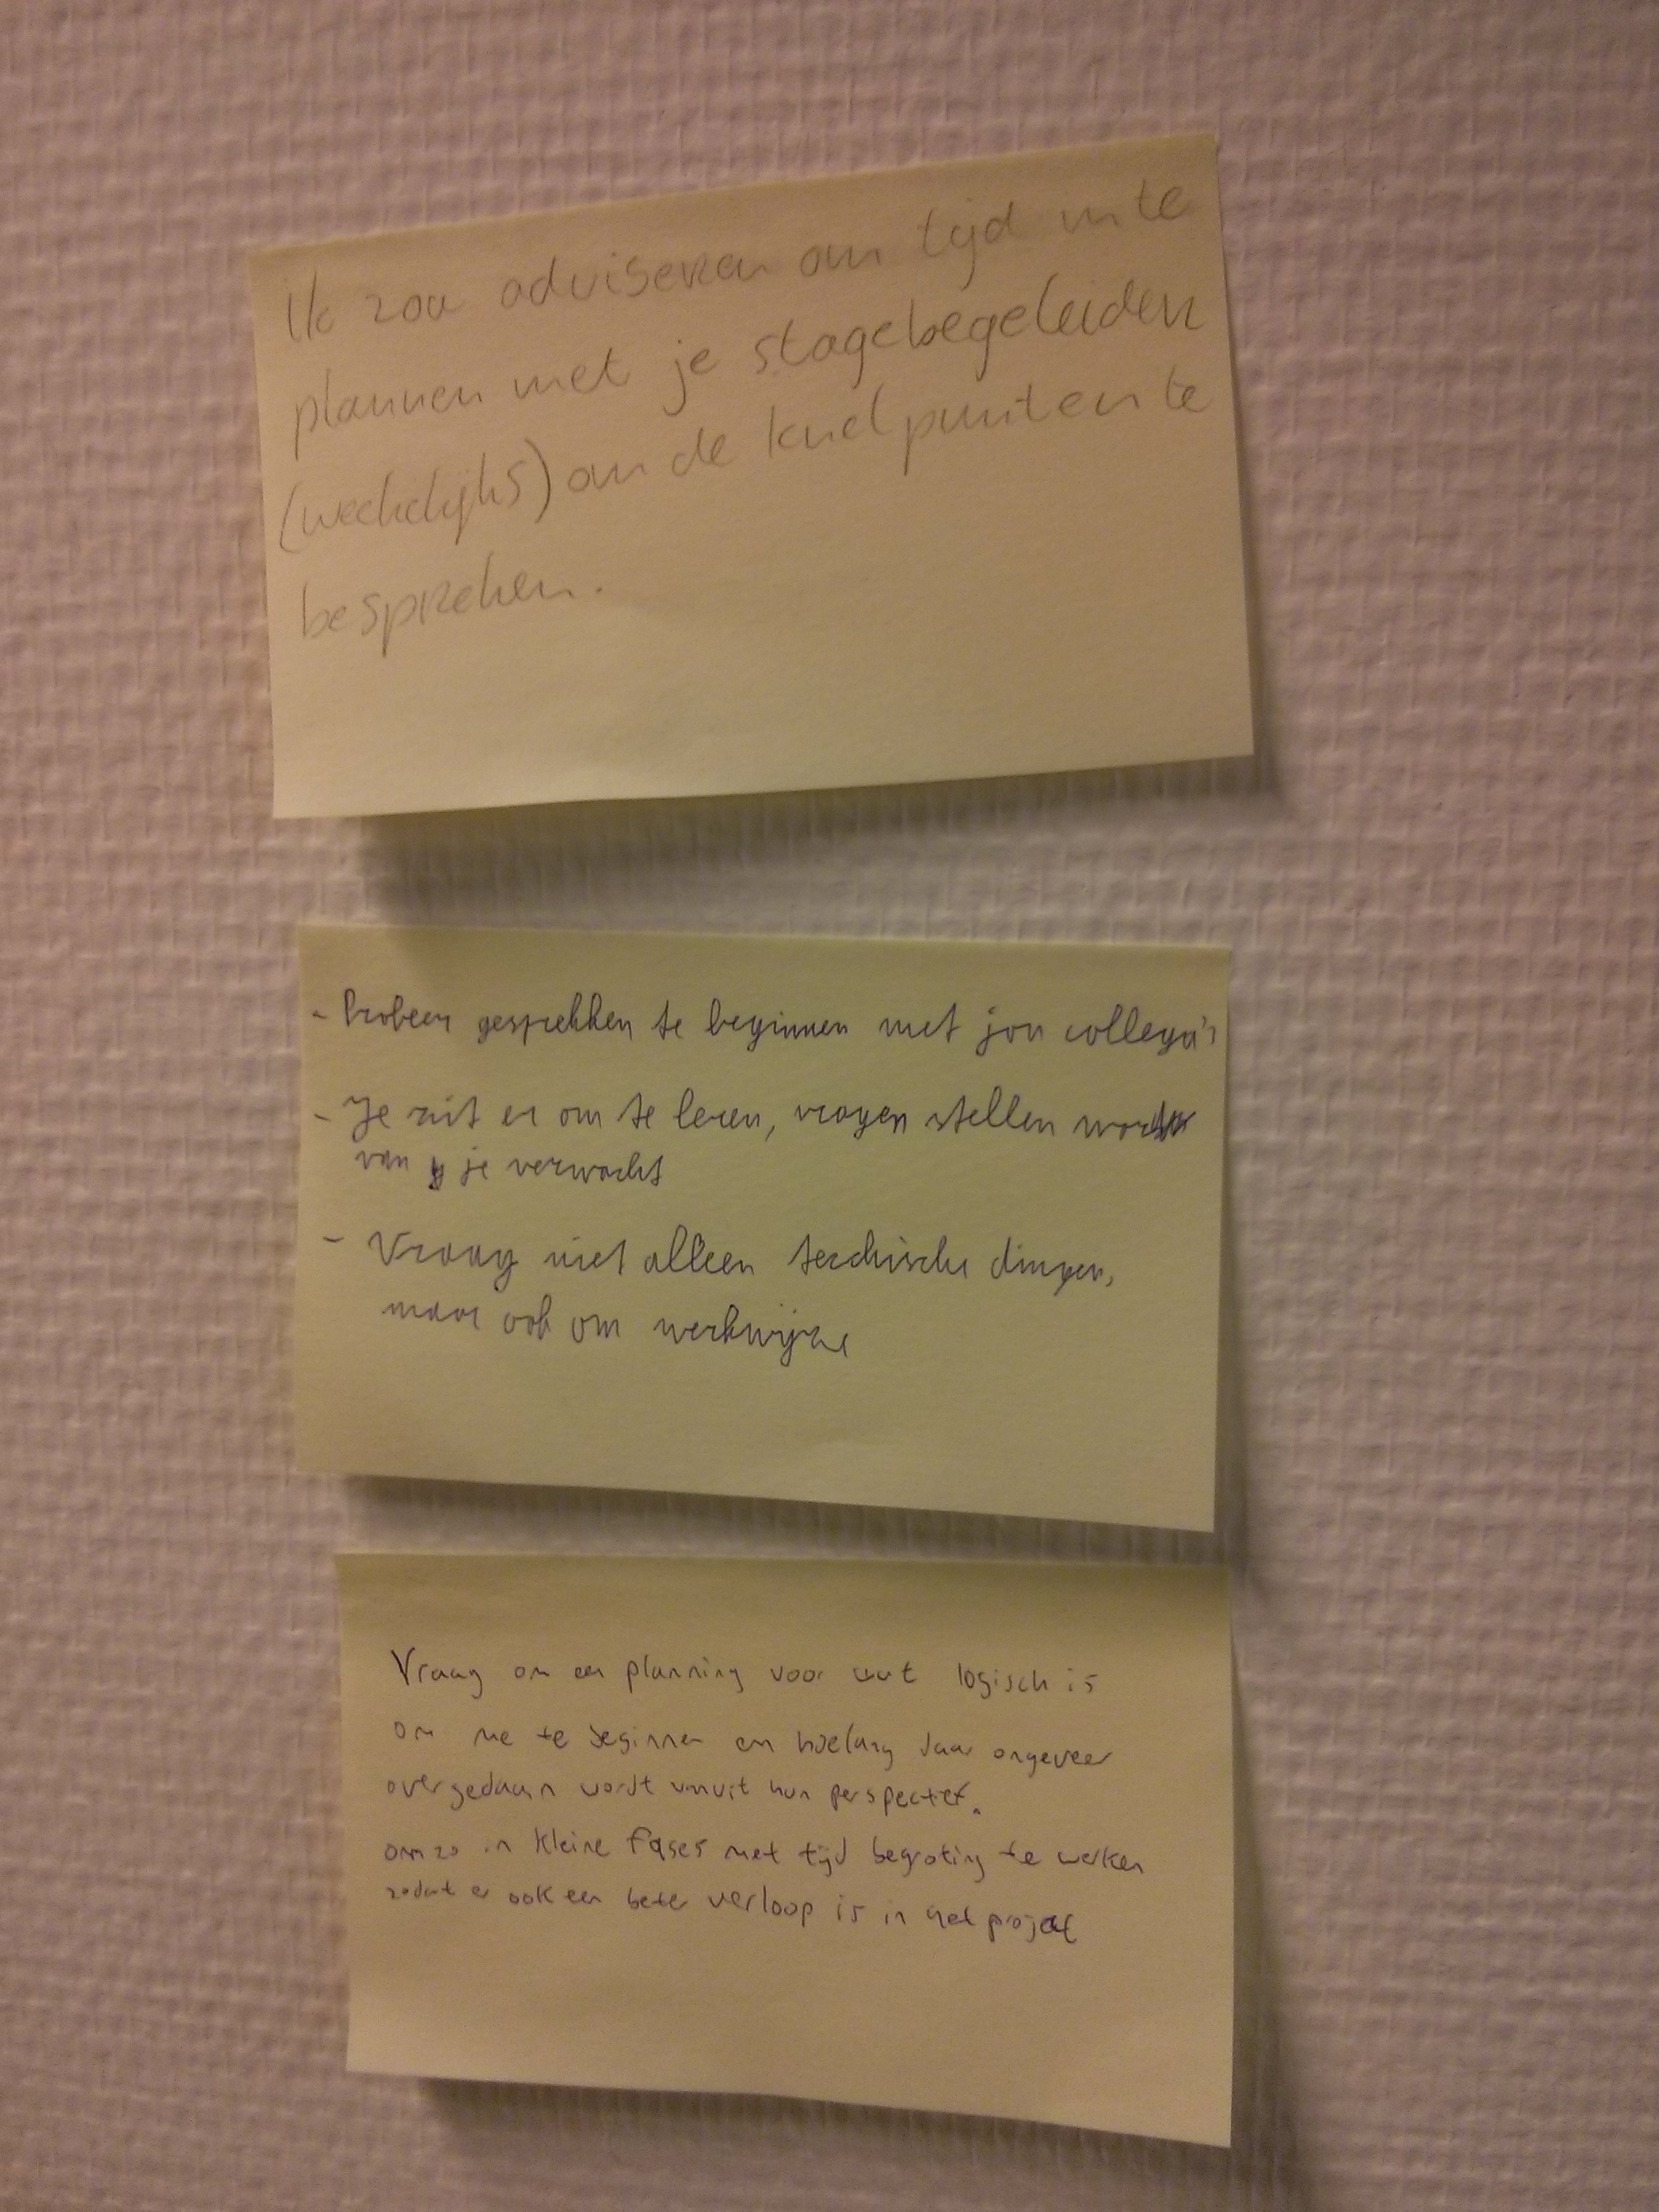 Ik zou adviseren om tijd in te
plannen met je stagebegeleider
(wekelijks) om de knelpunten te
bespreken.
- Probeer gesprekken te beginnen met jou collega's
- Je zit er om te leren, vragen stellen wordt
van je verwacht
- Vraag niet alleen technische dingen,
maar ook om werkwijze
Vraag om een planning voor wat logisch is
om me te beginnen en hoelang daar ongeveer
over gedaan wordt vanuit hun perspectief.
om zo in kleine fases met tijd begroting te werken
zodat er ook een beter verloop is in het project